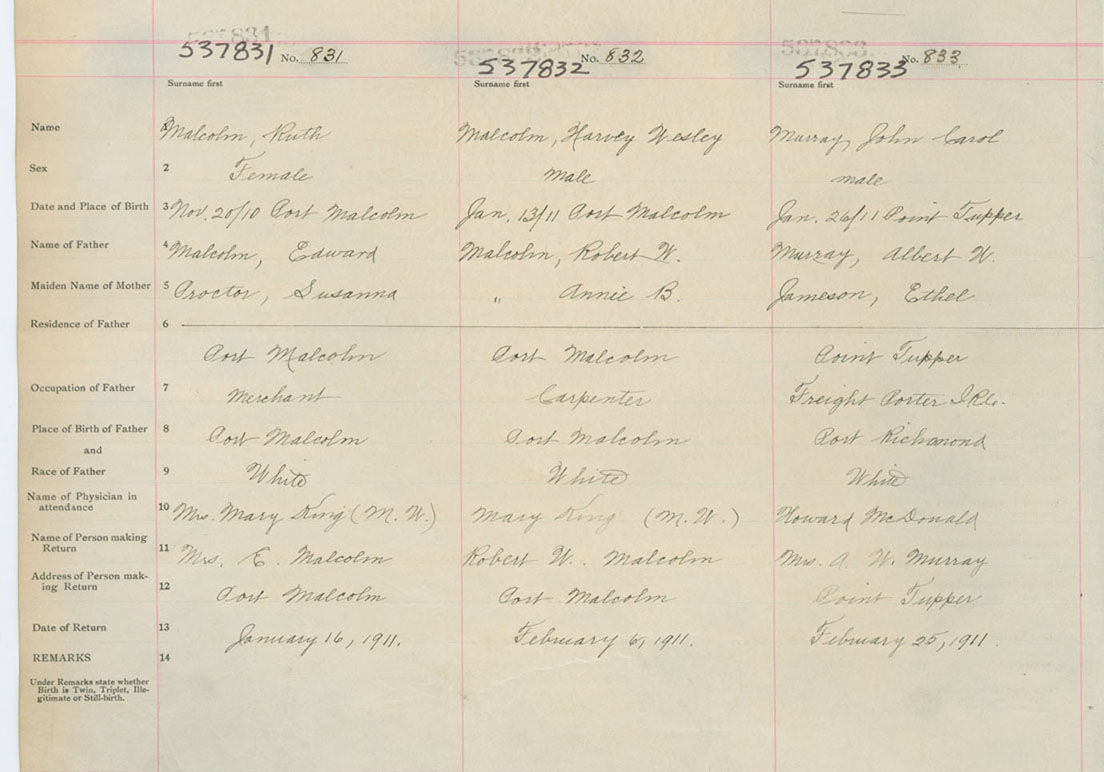 537831 No. 831 537832 No. 832 537833 No. 833
Surname first Surname first Surname first
Name Malcolm, Ruth Malcolm, Harvey Wesley Murray, John Carol
Sex 2 Female Male male
Date and Place of Birth 3 Nov. 20/10 Port Malcolm Jan. 13/11 Port Malcolm Jan. 26/11 Point Tupper
Name of Father 4 Malcolm, Edward Malcolm, Robert W. Murray, Albert W.
Maiden Name of Mother 5 Proctor, Susanna " Annie B. Jameson, Ethel
Residence of Father 6
Port Malcolm Port Malcolm Point Tupper
Occupation of Father 7 Merchant Carpenter Freight Porter I.R.C.
Place of Birth of Father 8 Port Malcolm Port Malcolm Port Richmond
and
Race of Father 9 White White White
Name of Physician in
attendance 10 Mrs. Mary King (M. W.) Mary King (M. W.) Howard McDonald
Name of Person making
Return 11 Mrs. E. Malcolm Robert W. Malcolm Mrs. A. W. Murray
Address of Person mak-
ing Return 12 Port Malcolm Port Malcolm Point Tupper
Date of Return 13 January 16, 1911. February 6, 1911. February 25, 1911
REMARKS 14
Under Remarks state whether
Birth is Twin, Triplet, Ille-
gitimate or Still-birth.